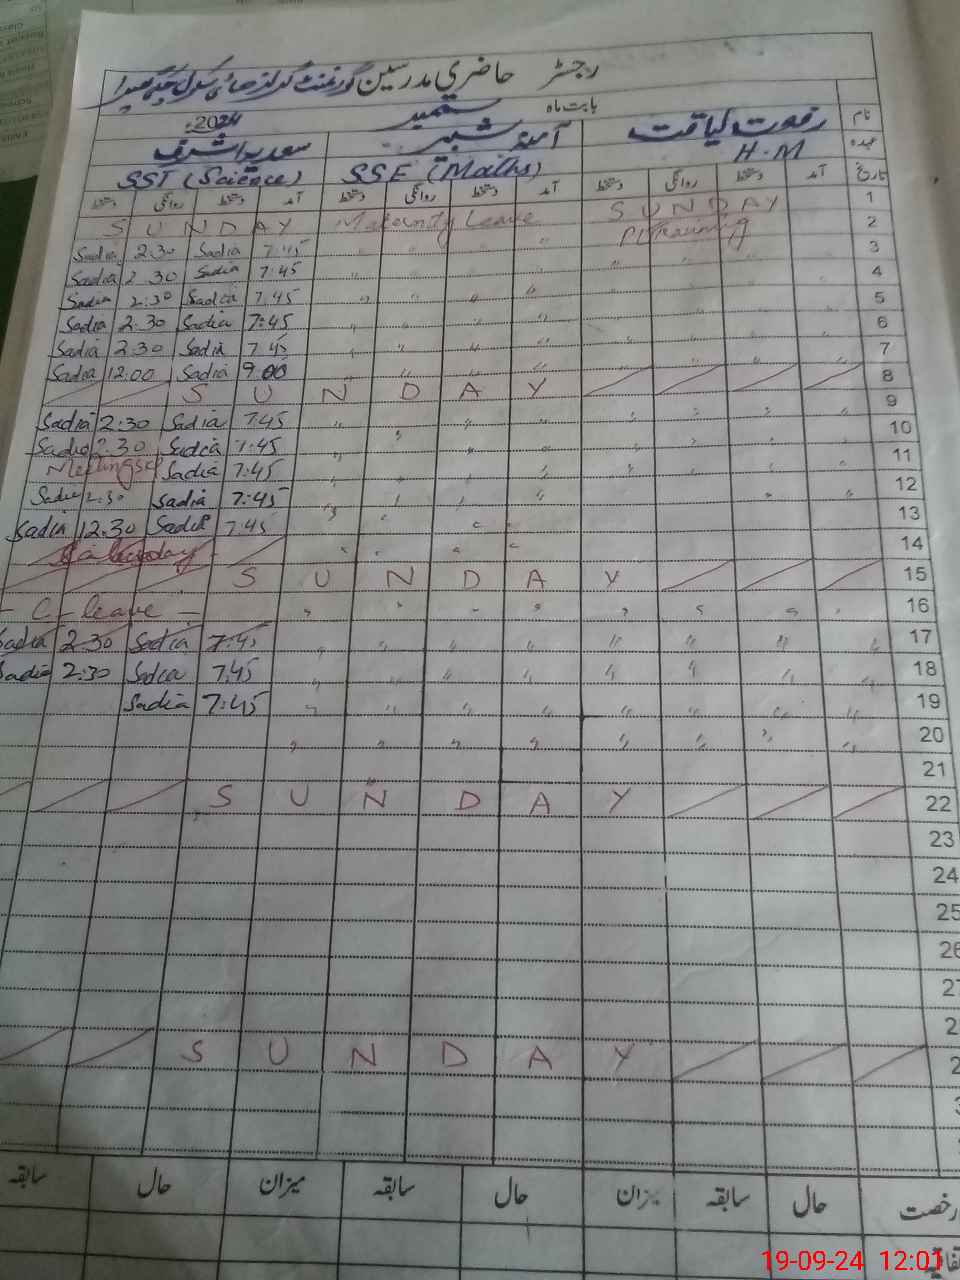 رجسٹر حاضری مدرسین گورنمنٹ گرلز ہائی سکول
بابت ماہ ستمبر 2024ء
نام رفعت لیاقت آمنہ شبیر سعدیہ اشرف
عہدہ H.M SSE (Maths) SST (Science)
تاریخ آمد دستخط روانگی دستخط آمد دستخط روانگی دستخط آمد دستخط روانگی دستخط
1 SUNDAY Maternity Leave SUNDAY
2 Training Sadia 2:30 Sadia 7:45
3 " " " " " Sadia 2:30 Sadia 7:45
4 " " " " " Sadia 2:30 Sadia 7:45
5 " " " " " Sadia 2:30 Sadia 7:45
6 " " " " " Sadia 2:30 Sadia 7:45
7 " " " " " Sadia 12:00 Sadia 9:00
8 SUNDAY
9 " " " " " Sadia 2:30 Sadia 7:45
10 " " " " " Sadia 2:30 Sadia 7:45
11 " " " " " Sadia 7:45
12 " " " " " Sadia 2:30 Sadia 7:45
13 Sadia 12:30 Sadia 7:45
14
15 SUNDAY
16 " " " " " " " " - C-leave -
17 " " " " " " " " Sadia 2:30 Sadia 7:45
18 " " " " " " " " Sadia 2:30 Sadia 7:45
19 " " " " " " " " Sadia 7:45
20 " " " " " " " "
21
22 SUNDAY
23
24
25
26
27
2
2 SUNDAY
3
رخصت حال سابقہ میزان حال سابقہ میزان حال سابقہ
19-09-24 12:01